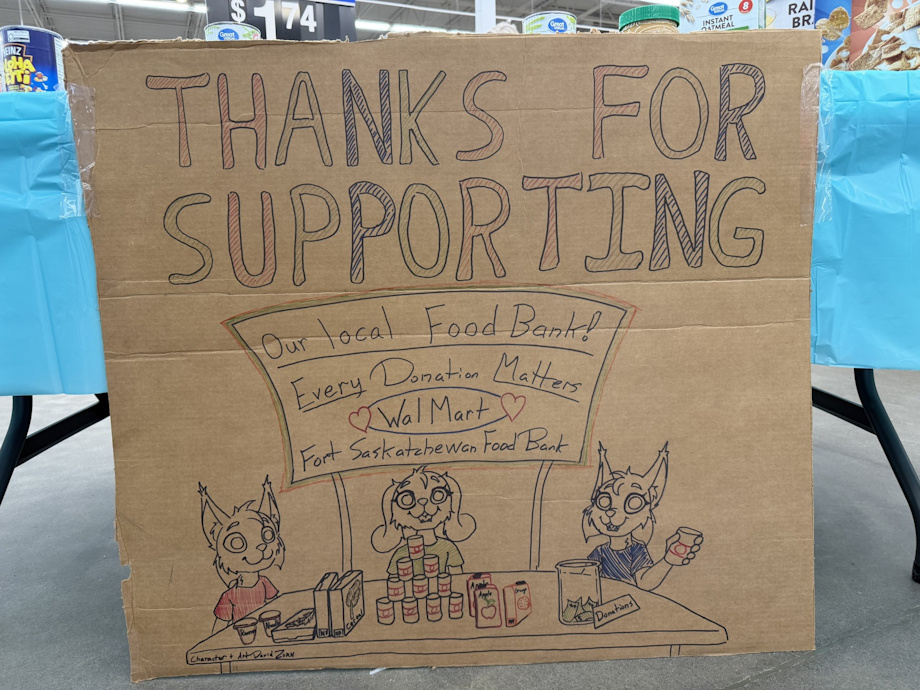 $1 74
Great Value
Great Value
INSTANT
OATMEAL
8
RAI
BR
HEINZ
THANKS FOR
SUPPORTING
Our local Food Bank!
Every Donation Matters
WalMart
Fort Saskatchewan Food Bank
Apple
Donations
Character & Art David Zonn